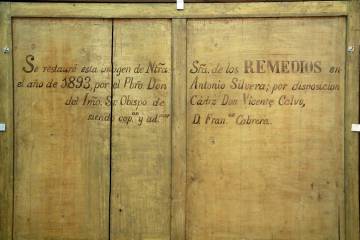 Se restauró esta imagen de Ntra. Sra. de los REMEDIOS en
el año de 1893, por el Pbro. Don Antonio Silvera; por disposicion
del Ilmo. Sr. Obispo de Cádiz Don Vicente Calvo,
siendo cap.ᵃⁿ y ad.ᵒʳ D. Fran.ᶜᵒ Cabrera.